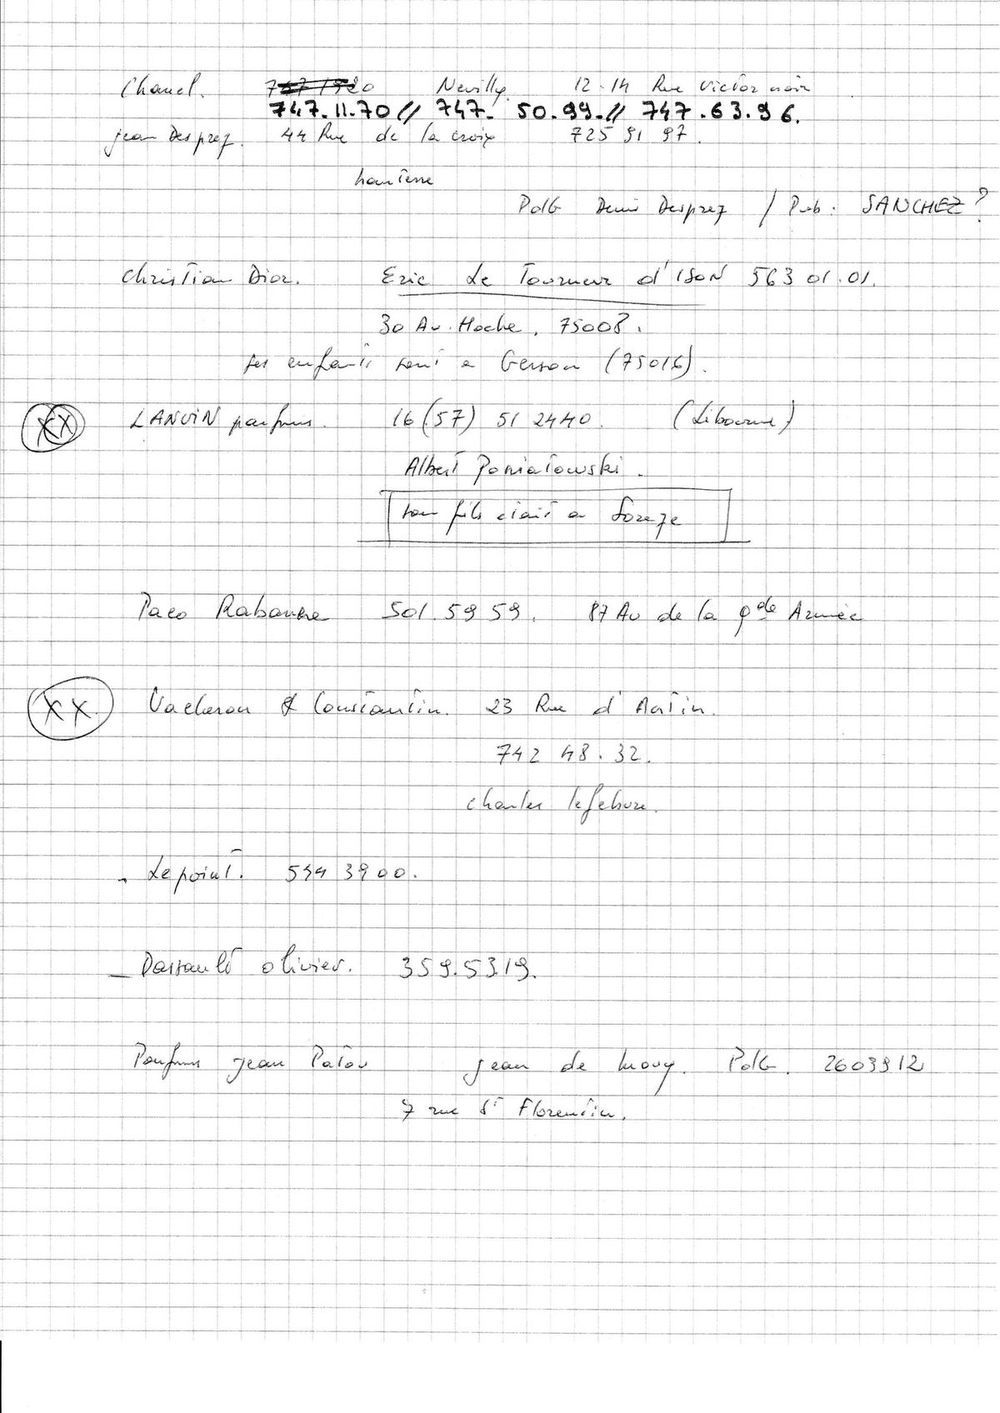 Chanel. Neuilly. 12-14 Rue Victor noir
747.11.70 // 747.50.99 // 747.63.96.
jean Desprez. 44 Rue de la croix 725 91 97.
nanterre
PdG Denis Desprez / Pub: SANCHEZ ?
Christian Dior. Eric Le Tourneur d'ISON 563 01.01.
30 Av. Hoche, 75008.
ses enfants sont a Gerson (75016).
XX LANVIN parfums. 16 (57) 51 2440. (Libourne)
Albert Poniatowski.
son fils était a Soreze
Paco Rabanne 501.59 59. 87 Av de la gde Armée
XX. Vacheron & Constantin. 23 Rue d'Antin.
742 48.32.
charles lefebvre.
- Le point. 544 3900.
- Dassault olivier. 359.5319.
Parfums jean Patou jean de Mouy. PdG. 2603912
7 rue St Florentin.